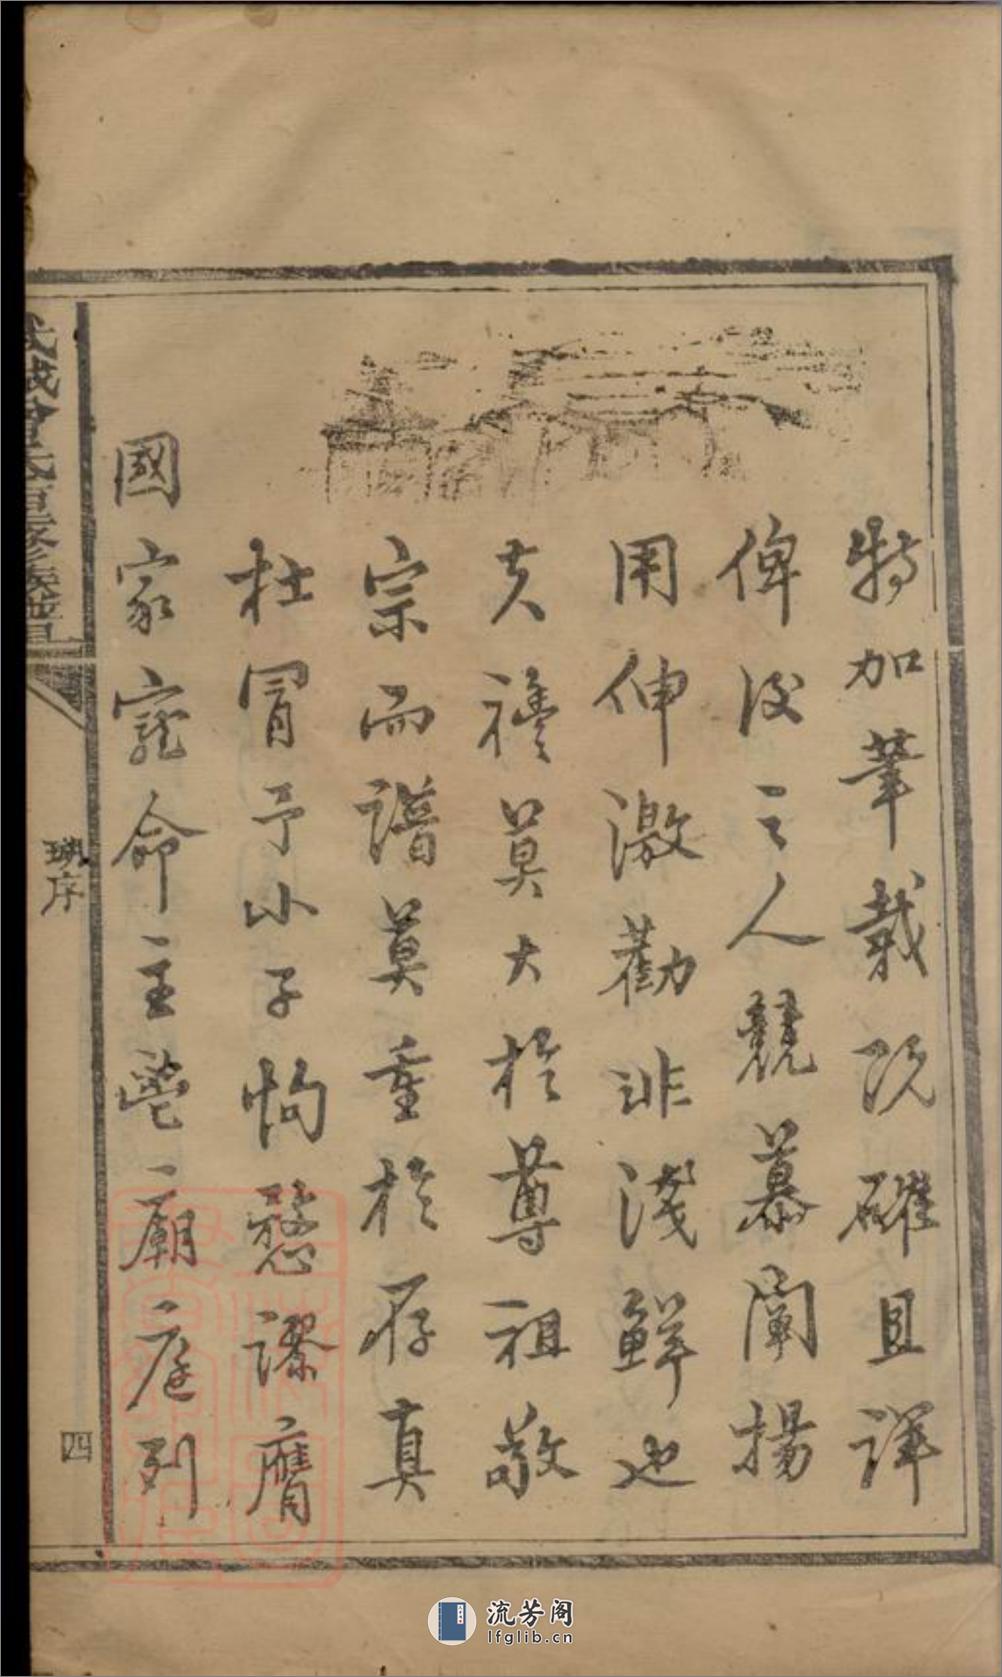 特加筆載既確且詳
俾後之人競慕闡揚
用伸激勸非淺鮮也
夫禮莫大於尊祖敬
宗而譜莫重於存真
杜冒予小子恂愨謬膺
國家寵命主鬯廟庭列
武城曾氏重修族譜
序
四
流芳阁
lfglib.cn